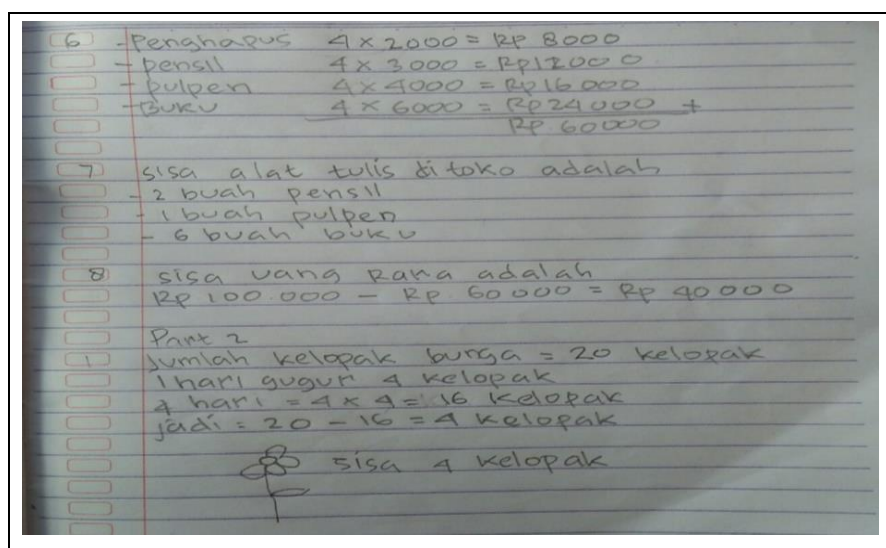 6 - Penghapus 4 x 2000 = Rp 8000
- pensil 4 x 3000 = Rp12000
- pulpen 4 x 4000 = Rp16000
- Buku 4 x 6000 = Rp24000 +
Rp 60000
7 sisa alat tulis di toko adalah
- 2 buah pensil
- 1 buah pulpen
- 6 buah buku
8 sisa uang Rana adalah
Rp 100.000 - Rp 60000 = Rp 40000
Part 2
1 Jumlah kelopak bunga = 20 kelopak
1 hari gugur 4 kelopak
4 hari = 4 x 4 = 16 kelopak
jadi = 20 - 16 = 4 kelopak
sisa 4 kelopak